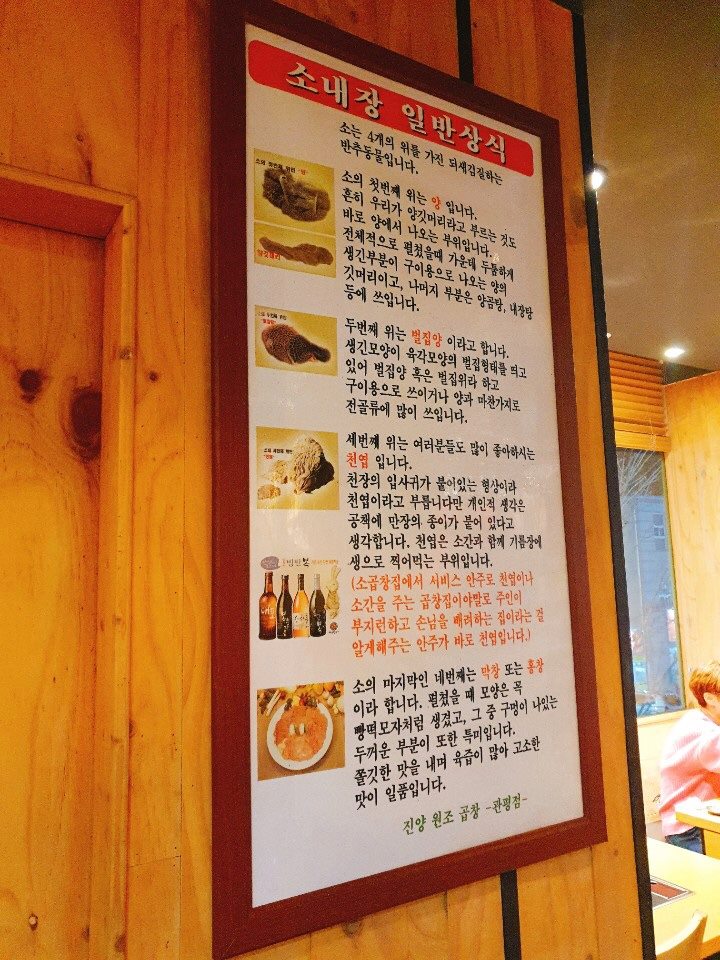 소내장 일반상식
소는 4개의 위를 가진 되새김질하는
반추동물입니다.
소의 첫번째 위는 양 입니다.
흔히 우리가 양깃머리라고 부르는 것도
바로 양에서 나오는 부위입니다.
전체적으로 펼쳤을때 가운데 두툼하게
생긴부분이 구이용으로 나오는 양의
깃머리이고, 나머지 부분은 양곰탕, 내장탕
등에 쓰입니다.
두번째 위는 벌집양 이라고 합니다.
생긴모양이 육각모양의 벌집형태를 띄고
있어 벌집양 혹은 벌집위라 하고
구이용으로 쓰이거나 양과 마찬가지로
전골류에 많이 쓰입니다.
세번째 위는 여러분들도 많이 좋아하시는
천엽 입니다.
천장의 입사귀가 붙이있는 형상이라
천엽이라고 부릅니다만 개인적 생각은
공책에 만장의 종이가 붙어 있다고
생각합니다. 천엽은 소간과 함께 기름장에
생으로 찍어먹는 부위입니다.
(소곱창집에서 서비스 안주로 천엽이나
소간을 주는 곱창집이야말로 주인이
부지런하고 손님을 배려하는 집이라는 걸
알게해주는 안주가 바로 천엽입니다.)
소의 마지막인 네번째는 막창 또는 홍창
이라 합니다. 펼쳤을 때 모양은 꼭
빵떡모자처럼 생겼고, 그 중 구멍이 나있는
두꺼운 부분이 또한 특미입니다.
쫄깃한 맛을 내며 육즙이 많아 고소한
맛이 일품입니다.
진양 원조 곱창 -관평점-